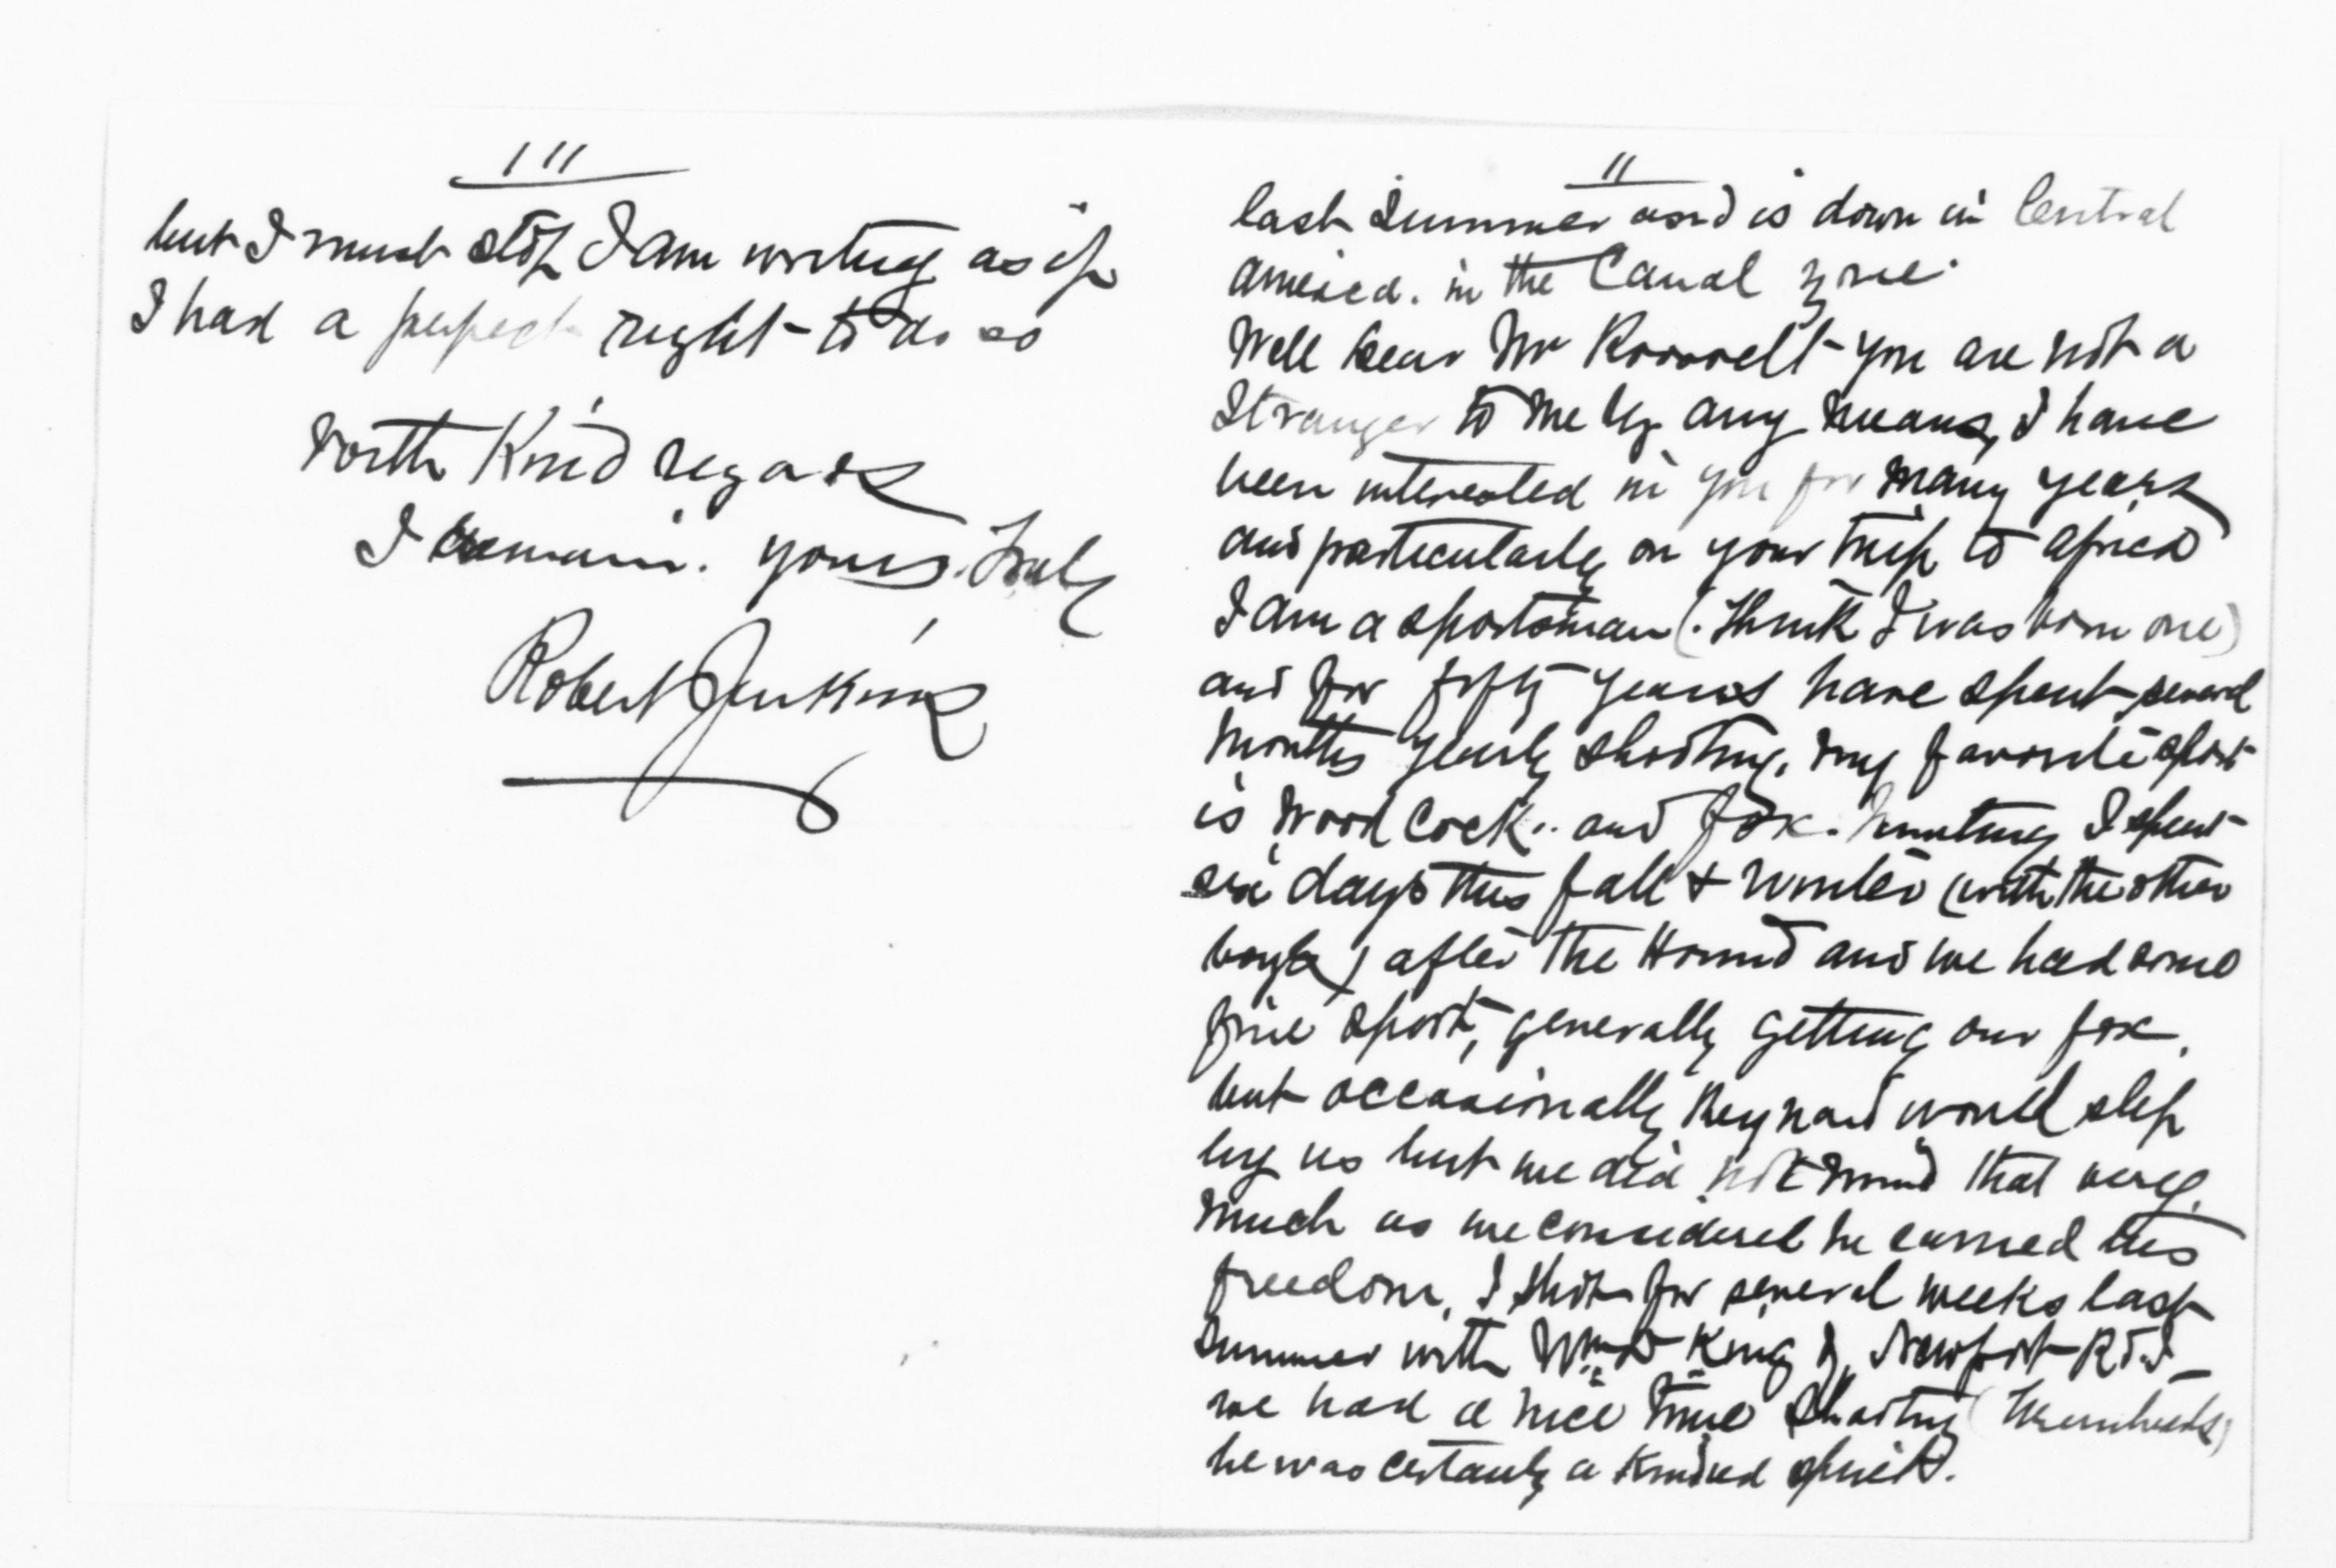 11
last Summer and is down in Central
America. in the Canal zone.
Well Dear Mr Roosvelt you are not a
Stranger to me by any means, I have
been interested in you for many years
and particularly on your trip to Africa
I am a sportsman (. think I was born one)
and for fifty years have spent several
months yearly shooting. my favorite sport
is Wood Cock.. and fox. hunting I spent
six days this fall + winter (with the other
boys) after the Hound and we had some
fine sport, generally getting our fox.
but occasionally Reynard would slip
by us but we did not mind that very
much as we considered he earned his
freedom. I shot for several weeks last
summer with Wm D King of Newport R.I.
we had a nice time shooting
he was certainly a kindred spirit.
111
but I must stop I am writing as if
I had a perfect right to do so
With Kind regards
I remain. yours. Truly
Robert Jenkins